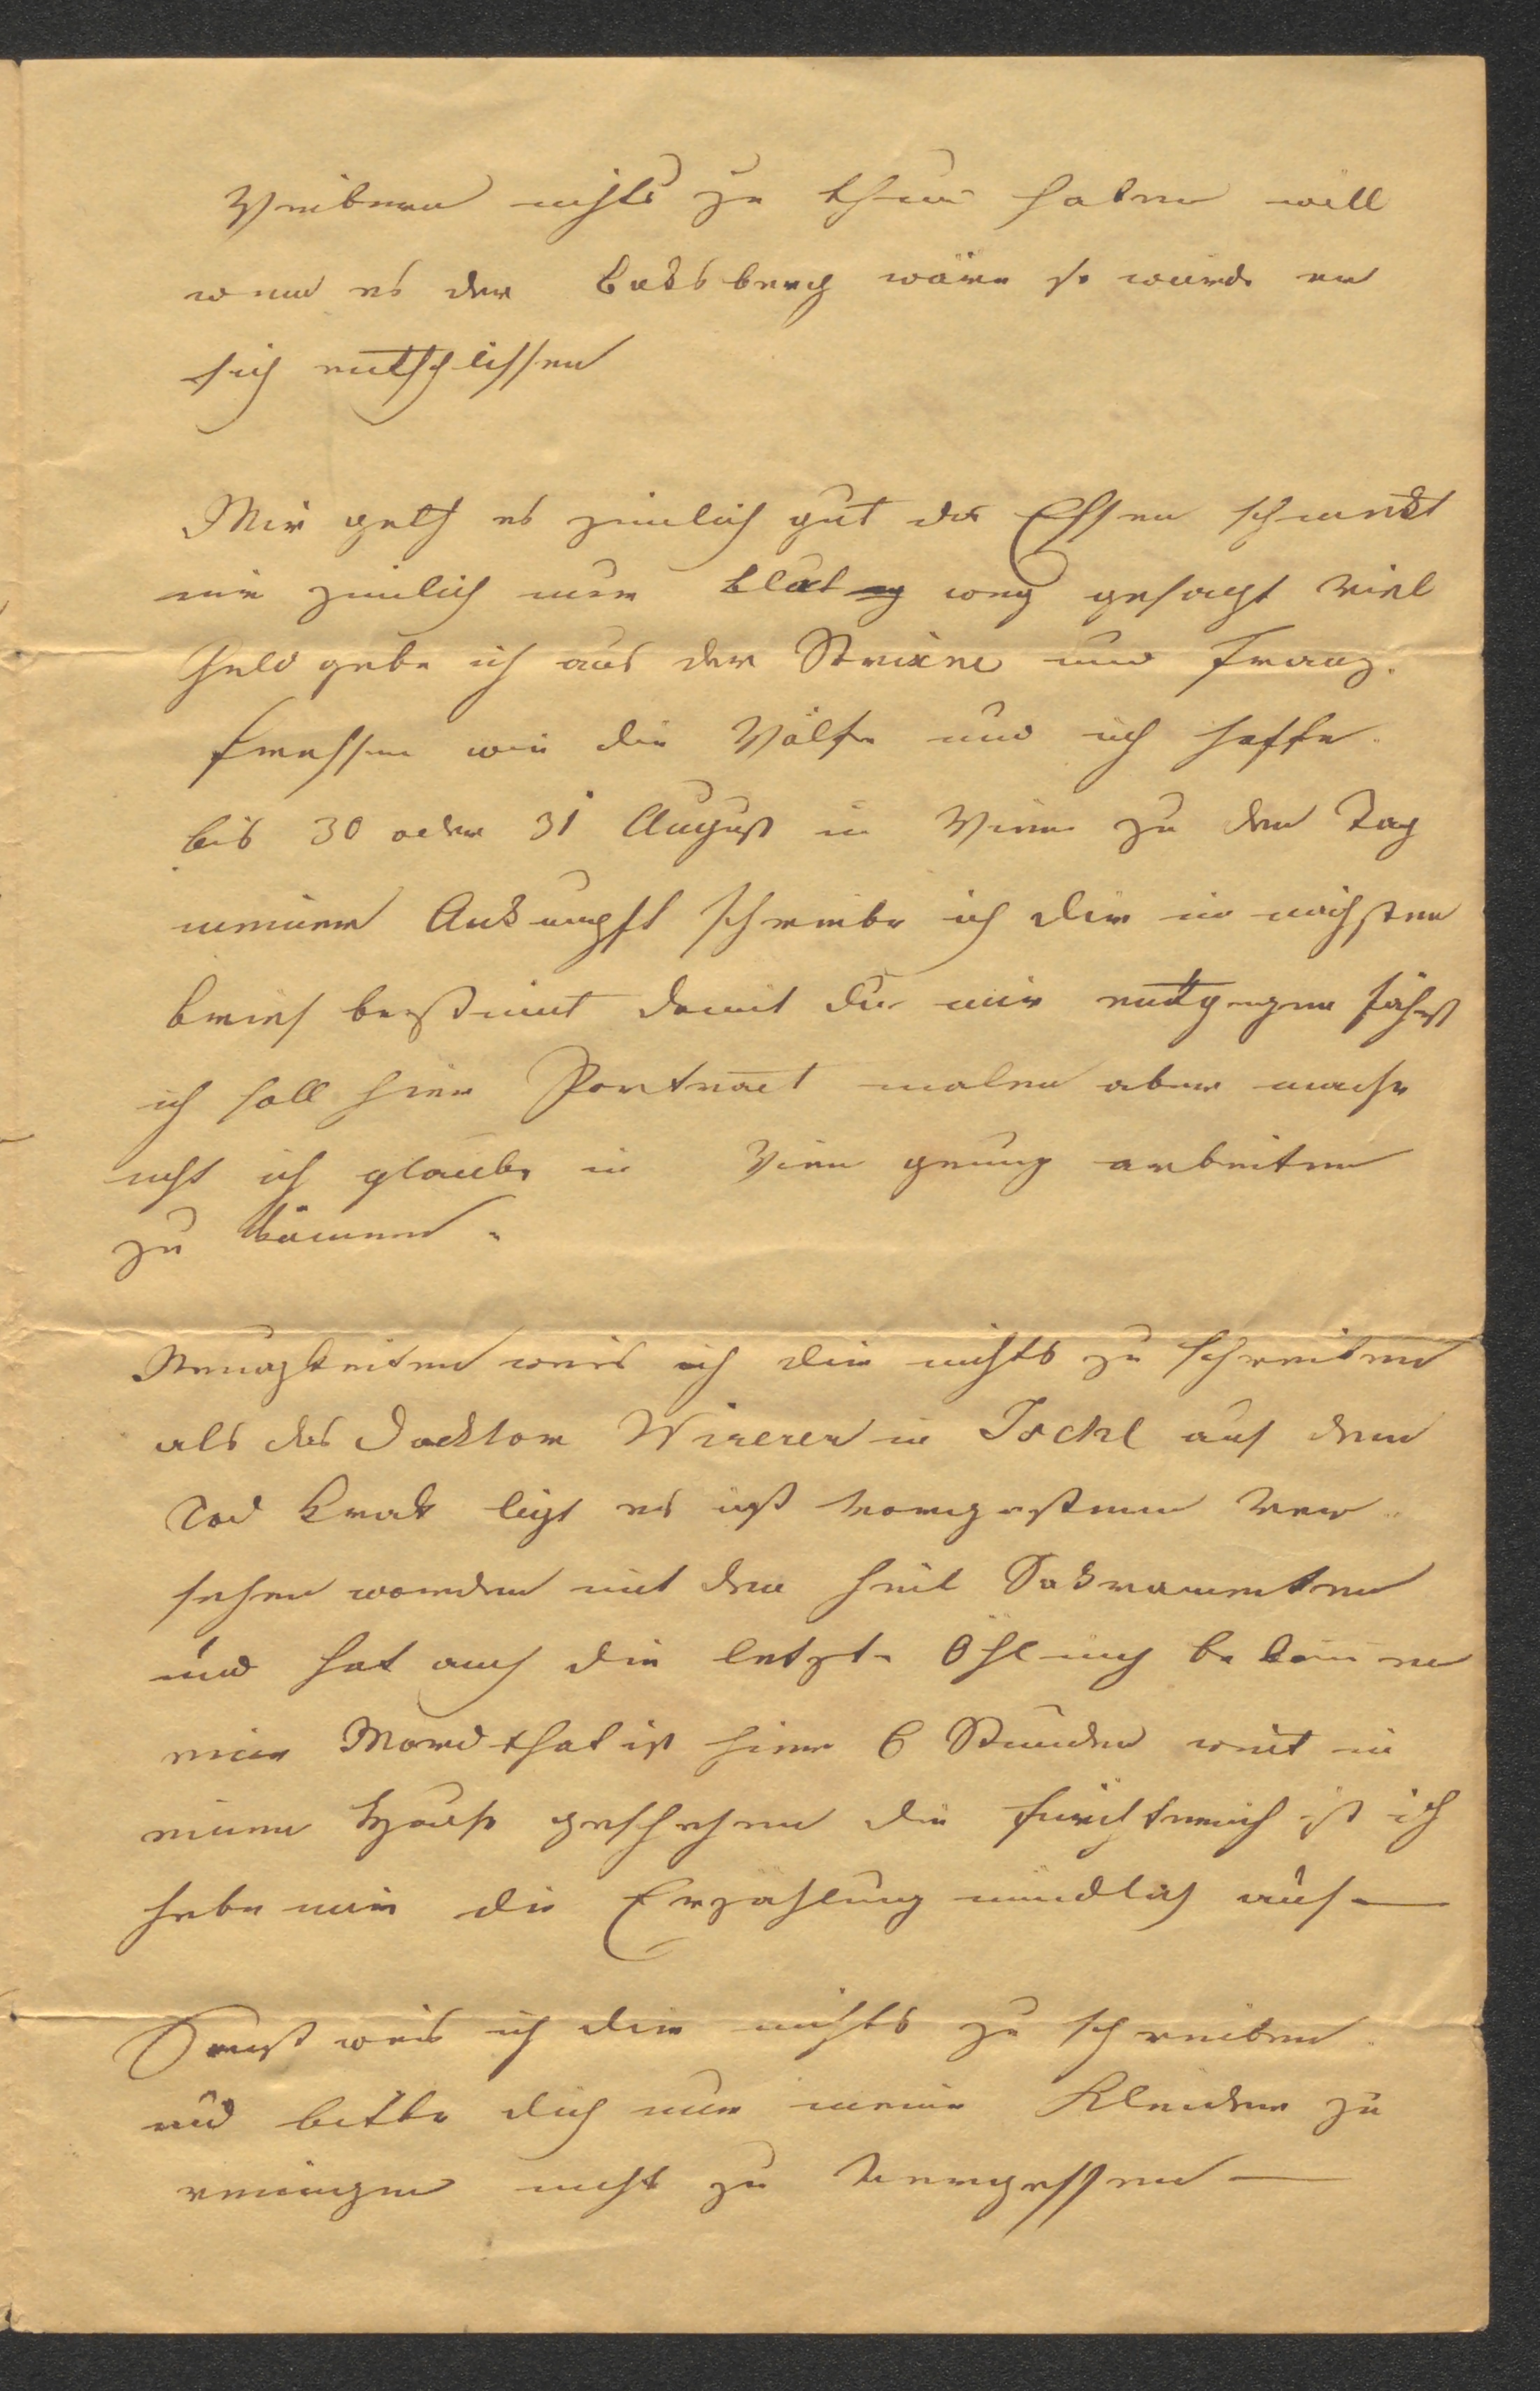 Weibern nichts zu thun haben will
wenn es der Coksberg wäre so würde er
sich entschlissen
Mir geth es zimlich gut das Essen schmekt
mir zimlich nur blut weg gesagt viel
Geld gebe ich aus der und Franz.
fressen wie die Wölfe und ich hoffe
bis 30 oder 31 August in Wien zu den Tag
meiner Ankumpft schreibe ich dir im nächsten
brief bestimt damit du mir entgegen fährst
ich soll hier Portraet malen aber mache
nicht ich glaube in Wien genug arbeiten
zu können.
Neuigkeiten weis ich dir nichts zu schreiben
als das Docktor Wirerer in Ischl auf dem
Tod krak ligt es ist vorgestern ver
sehen worden mit den heil Sakramenten
und hat auch die letzte Öhlung bekomen
eine Mordthat ist hier 6 Stunden weit in
einem Hause geschehen die fürchterich ist ich
hebe mir die Erzählung mündlich auf —
Sonst weis ich dir nichts zu schreiben
und bitte dich nur meine Kleider zu
reinigen nicht zu vergessen —